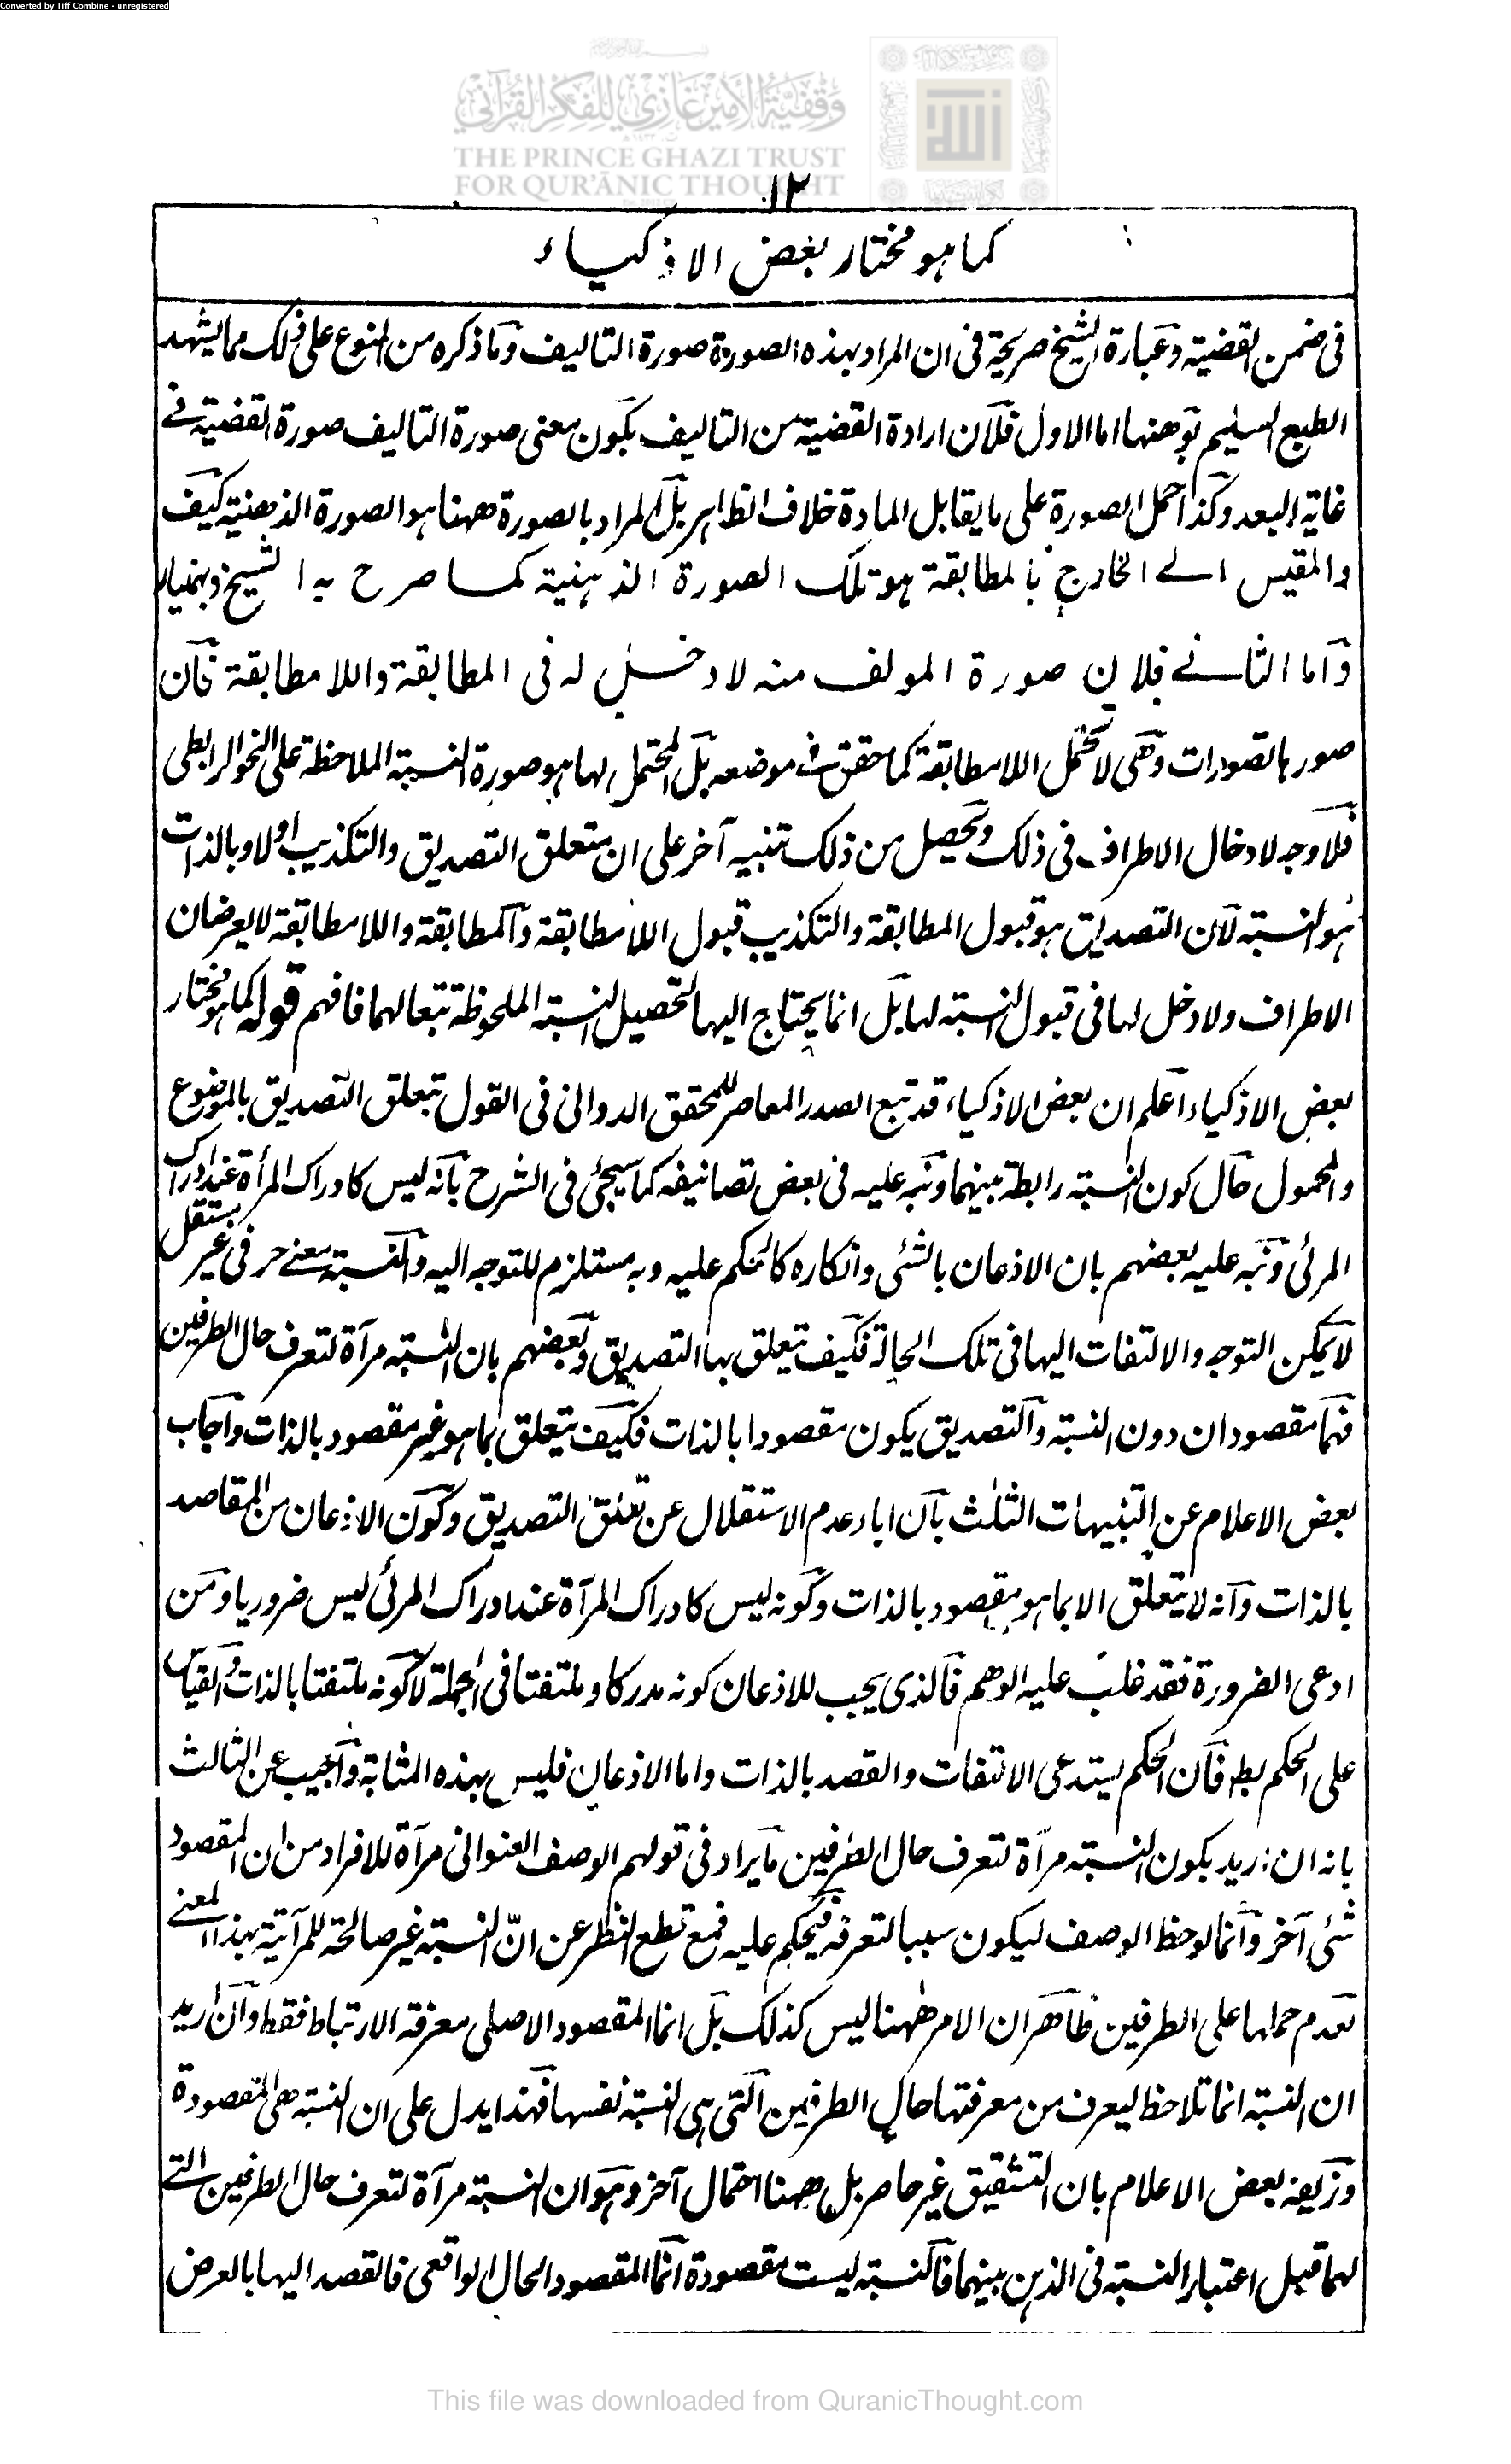 Converted by Tiff Combine - unregistered
وقفية الأمير غازي للفكر القرآني
THE PRINCE GHAZI TRUST
FOR QUR'ĀNIC THOUGHT
١٢
كما هو مختار بعض الاذكياء
فى ضمن القضية وعبارة الشيخ صريحة فى ان المراد بهذه الصورة صورة التاليف وما ذكره من النوع على ذلك مما يشهد
الطبع السليم بوهنها اما الاول فلان ارادة القضية من التاليف بكون معنى صورة التاليف صورة القضية فے
غاية البعد وكذا حمل الصورة على ما يقابل المادة خلاف الظاهر بل المراد بالصورة ههنا هو الصورة الذهنية كيف
والمقيس الے الخارج بالمطابقة هو تلك الصورة الذهنية كما صرح به الشيخ وبهمنيار
واما الثانے فلان صورة المولف منه لا دخل له فى المطابقة واللا مطابقة فان
صورها تصورات وهى لا تحتمل اللامطابقة كما حقق فے موضعه بل المحتمل لها هو صورة النسبة الملاحظة على النحو الرابطى
فلا وجه لادخال الاطراف فى ذلك وتحصيل من ذلك تنبيه آخر على ان متعلق التصديق والتكذيب اولا وبالذات
هو النسبة لان التصديق هو قبول المطابقة والتكذيب قبول اللامطابقة والمطابقة واللا مطابقة لا يعرضان
الاطراف ولا دخل لها فى قبول النسبة لها بل انما يحتاج اليها لتحصيل النسبة الملحوظة تبعا لهما فافهم قوله كما هو مختار
بعض الاذكياء اعلم ان بعض الاذكياء قد تبع الصدر المعاصر للمحقق الدوانى فى القول بتعلق التصديق بالموضوع
والمحمول حال كون النسبة رابطة بينهما ونبه عليه فى بعض تصانيفه كما سيجئ فى الشرح بانه ليس كادراك المرأة عند ادراك
المرئى ونبه عليه بعضهم بان الاذعان بالشئى وانكاره كالحكم عليه وبه مستلزم للتوجه اليه والنسبة معنے حرفى غير مستقل
لا يمكن التوجه والالتفات اليها فى تلك الحالة فكيف يتعلق بها التصديق وبعضهم بان النسبة مرآة لتعرف حال الطرفين
فهما مقصودان دون النسبة والتصديق يكون مقصودا بالذات فكيف يتعلق بما هو غير مقصود بالذات واجاب
بعض الاعلام عن التنبيهات الثلث بان اباء عدم الاستقلال عن تعلق التصديق وكون الاذعان من المقاصد
بالذات وانه لا يتعلق الا بما هو مقصود بالذات وكونه ليس كادراك المرآة عند ادراك المرئى ليس ضروريا ومن
ادعى الضرورة فقد غلب عليه الوهم فالذى يجب للاذعان كونه مدركا وملتفتا فى الجملة لا كونه ملتفتا بالذات والقياس
على الحكم بط فان الحكم يستدعى الالتفات والقصد بالذات واما الاذعان فليس بهذه المثابة واجيب عن الثالث
بانه ان اريد بكون النسبة مرآة لتعرف حال الطرفين ما يراد فى قولهم الوصف العنوانى مرآة للافراد من ان المقصود
شئى آخر وانما لوحظ الوصف ليكون سببا لتعرفه فيحكم عليه فمع قطع النظر عن انّ النسبة غير صالحة للمرآتية بهذا المعنے
لعدم حملها على الطرفين ظاهر ان الامر ههنا ليس كذلك بل انما المقصود الاصلى معرفة الارتباط فقط وان اريد
ان النسبة انما تلاحظ ليعرف من معرفتها حال الطرفين التى هى النسبة نفسها فهذا يدل على ان النسبة هى المقصودة
وزيفه بعض الاعلام بان التشقيق غير حاصر بل ههنا احتمال آخر وهو ان النسبة مرآة لتعرف حال الطرفين التے
لهما قبل اعتبار النسبة فى الذهن بينهما فالنسبة ليست مقصودة انما المقصود الحال الواقعى فالقصد اليها بالعرض
This file was downloaded from QuranicThought.com